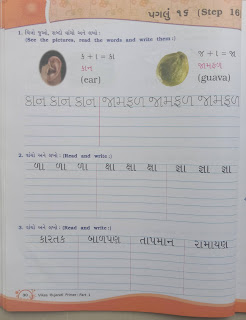 પગલું ૧૬ (Step 16
1. ચિત્રો જુઓ, શબ્દો વાંચો અને લખો :
(See the pictures, read the words and write them :)
ક + ા = કા
કાન
(ear)
જ + ા = જા
જામફળ
(guava)
કાન કાન કાન જામફળ જામફળ જામફળ
2. વાંચો અને લખો : (Read and write :)
ળા ળા ળા ક્ષા ક્ષા ક્ષા જ્ઞા જ્ઞા જ્ઞા
3. વાંચો અને લખો : (Read and write :)
કારતક બાળપણ તાપમાન રામાયણ
Vikas Gujarati Primer : Part 1